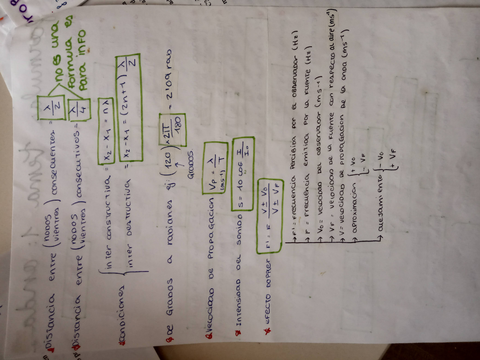 no es una
fórmula es
para info
Distancia entre (nodos vientres) consecuentes = λ/2
Distancia entre (nodos vientres) consecutivos = λ/4
Condiciones { inter constructiva = x2 - x1 = nλ
inter destructiva = x2 - x1 = (2n+1) λ/2
De grados a radianes ej: (120) × 2π/180 = 2'09 rad
↑
GRADOS
Velocidad de propagación Vp = λ/T
(ms⁻¹)
Intensidad del sonido S = 10 log I/I₀
Efecto doppler F' = F V ± V₀ / V ± VF
→ F' = frecuencia recibida por el observador (Hz)
→ F = frecuencia emitida por la fuente (Hz)
→ V₀ = velocidad del observador (ms⁻¹)
→ VF = velocidad de la fuente con respecto al aire (ms⁻¹)
→ V = velocidad de propagación de la onda (ms⁻¹)
→ aproximación + V₀
- VF
→ alejamiento - V₀
+ VF